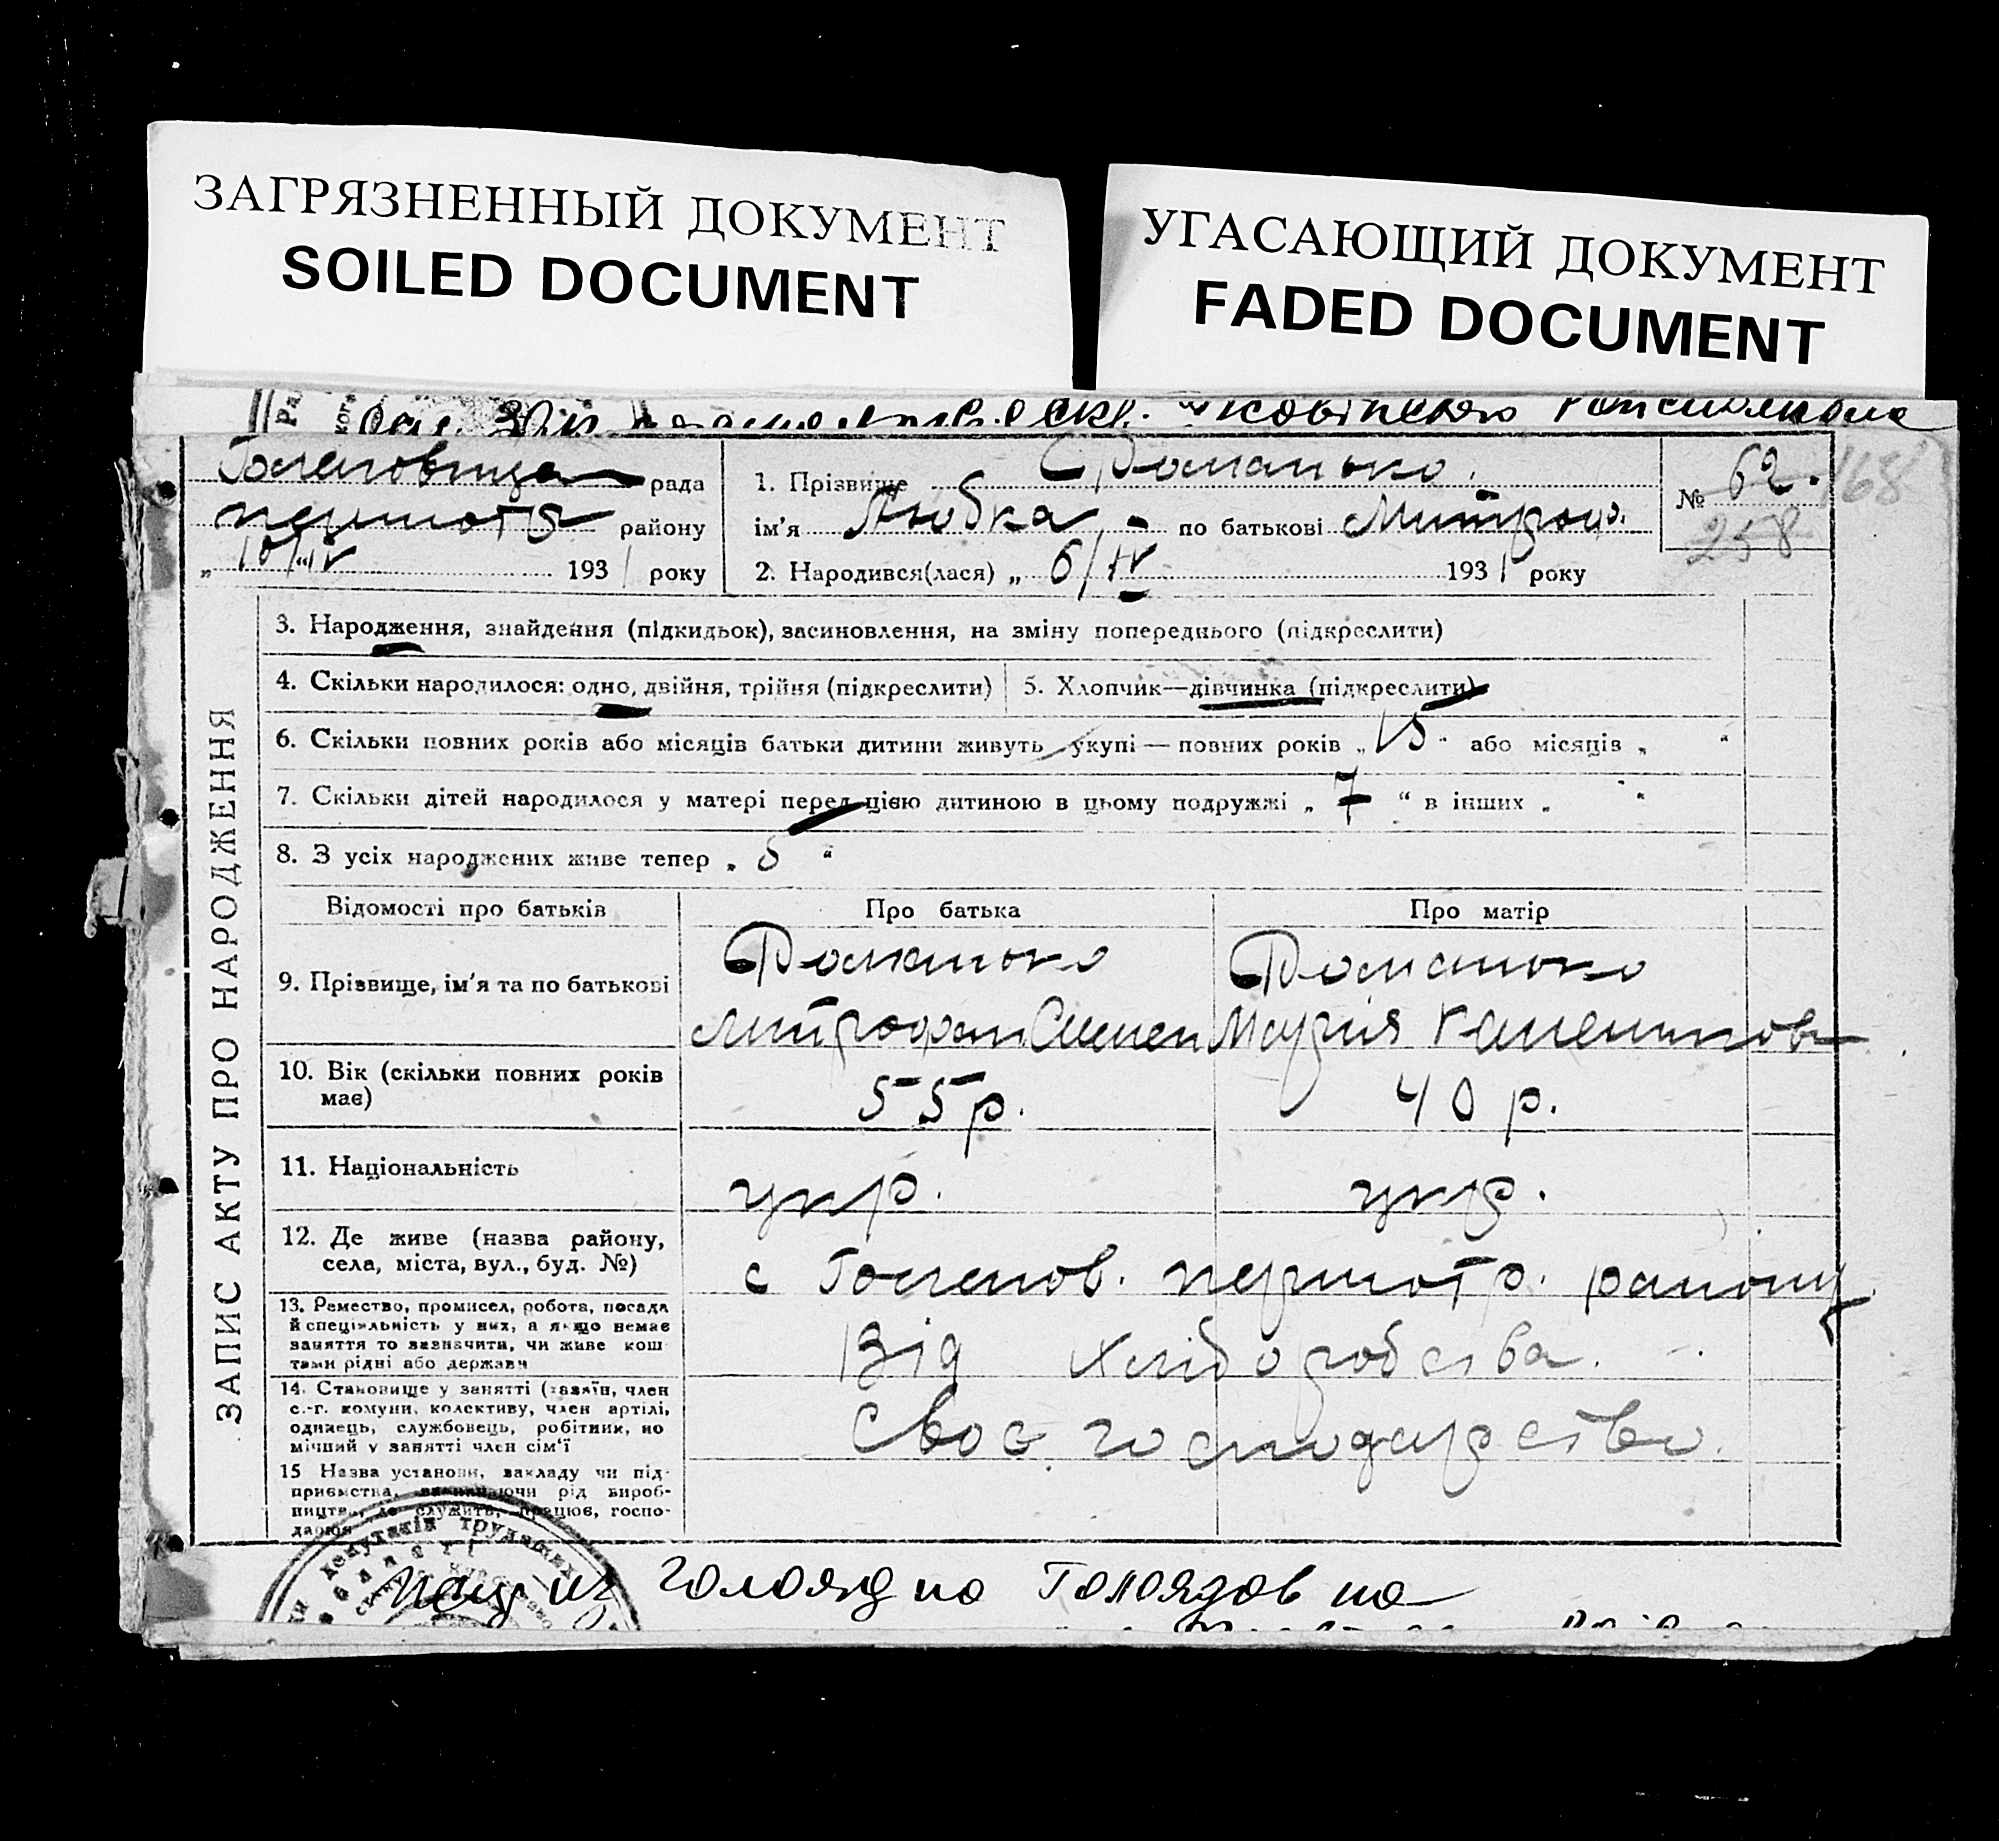 ЗАГРЯЗНЕННЫЙ ДОКУМЕНТ
SOILED DOCUMENT
УГАСАЮЩИЙ ДОКУМЕНТ
FADED DOCUMENT
рада
району
„ 10/IV 1931 року
1. Прізвище Романько.
ім'я Любка по батькові Митроф.
2. Народився(лася) „ 6/IV 1931 року
№ 62.
168
258
ЗАПИС АКТУ ПРО НАРОДЖЕННЯ
3. Народження, знайдення (підкидьок), засиновлення, на зміну попереднього (підкреслити)
4. Скільки народилося: одно, двійня, трійня (підкреслити)
5. Хлопчик—дівчинка (підкреслити)
6. Скільки повних років або місяців батьки дитини живуть укупі — повних років „ 15 “ або місяців „ “
7. Скільки дітей народилося у матері перед цією дитиною в цьому подружжі „ 7 “ в інших „ “
8. З усіх народжених живе тепер „ 5 “
Відомості про батьків
Про батька
Про матір
9. Прізвище, ім'я та по батькові
Романько
Митрофан Семен
Романько
Марія
10. Вік (скільки повних років
має)
55 р.
40 р.
11. Національність
укр.
укр.
12. Де живе (назва району,
села, міста, вул., буд. №)
с району
13. Ремество, промисел, робота, посада
й спеціяльність у них, а якщо немає
заняття то зазначити, чи живе кош
тами рідні або держави
Від хліборобства.
14. Становище у занятті (хазяїн, член
с.-г. комуни, колективу, член артілі,
одинець, службовець, робітник, по
мічний у занятті член сім'ї
Своє господарство.
15 Назва установи, закладу чи під-
приємства, зазначаючи рід вироб-
ництва, де служить, працює, госпо-
дарює
депутатів трудящих
из на